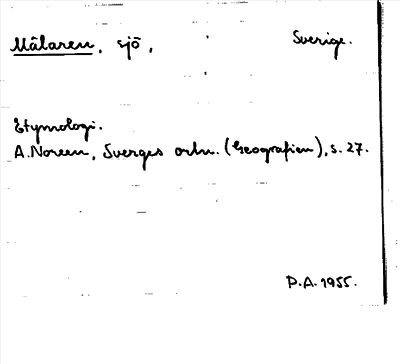 Mälaren, sjö, Sverige.
Etymologi.
A. Noreen, Sverges ortn. (Geografien), s. 27.
P.A. 1955.